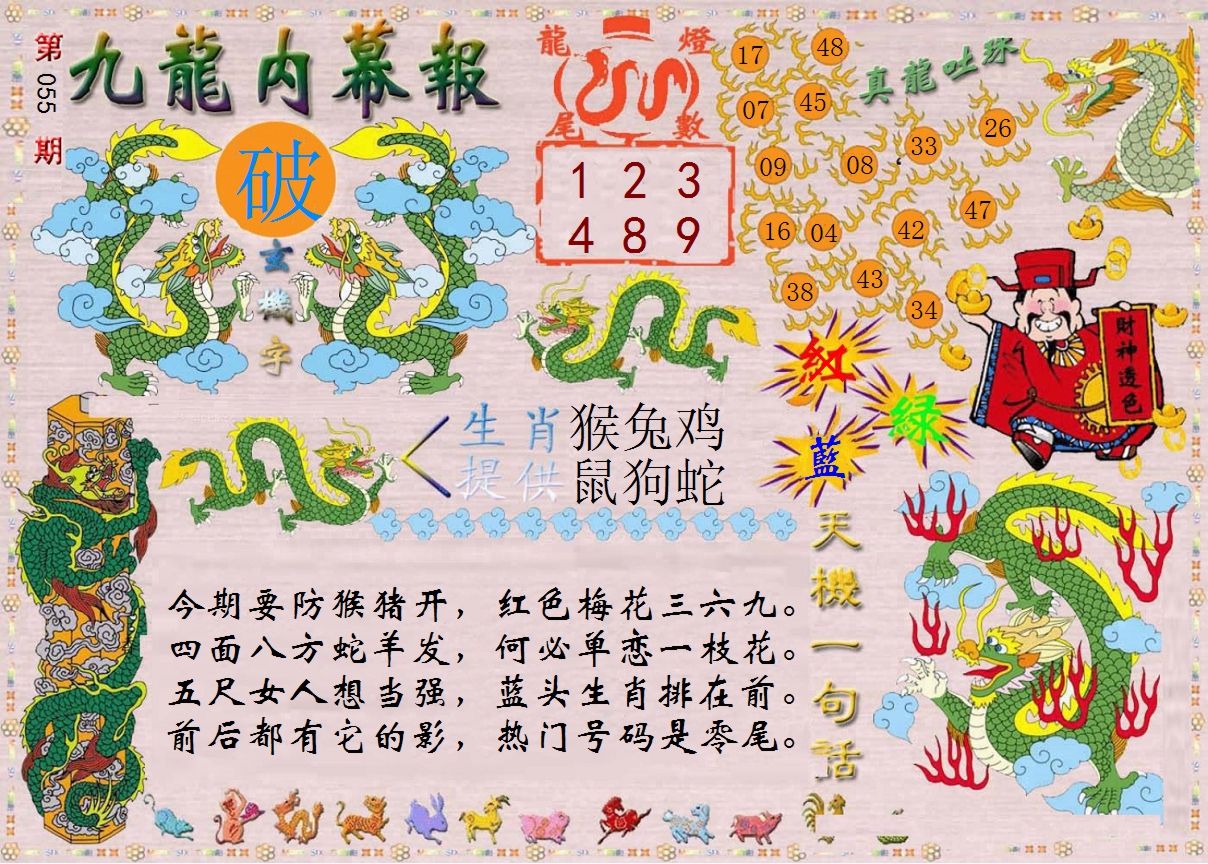 第055期
九龍内幕報
破
玄機字
龍燈尾數
1 2 3
4 8 9
真龍吐珠
17 48
07 45
09 08 33 26
16 04 42 47
38 43 34
財神透色
紅
綠
藍
生肖提供
猴兔鸡
鼠狗蛇
天機一句話
今期要防猴猪开，红色梅花三六九。
四面八方蛇羊发，何必单恋一枝花。
五尺女人想当强，蓝头生肖排在前。
前后都有它的影，热门号码是零尾。